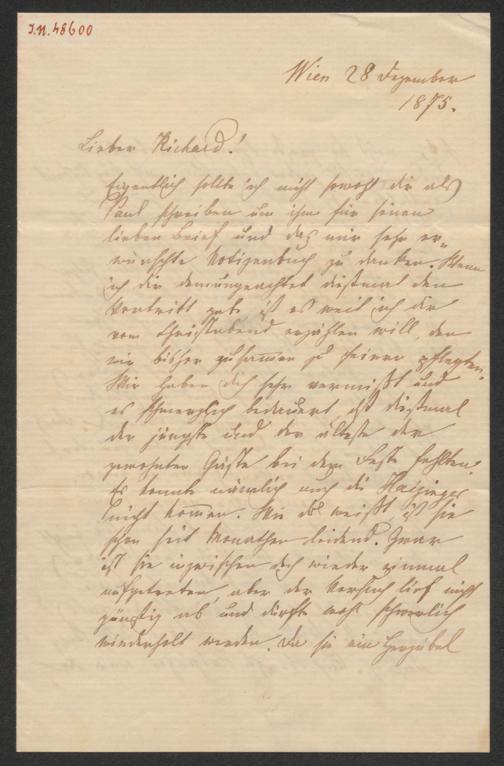 I.N. 48600
Wien 28 Dezember
1875.
Lieber Richard!
Eigentlich sollte ich nicht sowohl dir als
Paul schreiben um ihm für seinen
lieben Brief und das mir sehr er-
wünschte Notizenbuch zu danken. Wenn
ich dir demungeachtet diesmal den
Vortritt gebe, ist es weil ich dir
vom Christabend erzählen will, den
wir bisher zusammen zu feiern pflegten.
Wir haben dich sehr vermißt und
es schmerzlich bedauert, daß diesmal
der jüngste und der älteste der
gewohnten Gäste bei dem Feste fehlten.
Es konnte nämlich auch die Haizinger
nicht kommen. Wie du weißt ist sie
schon seit Monaten leidend. Zwar
ist sie inzwischen doch wieder einmal
aufgetreten, aber der Versuch lief nicht
günstig ab und dürfte wohl schwerlich
wiederholt werden. Da sie ein Herzübel